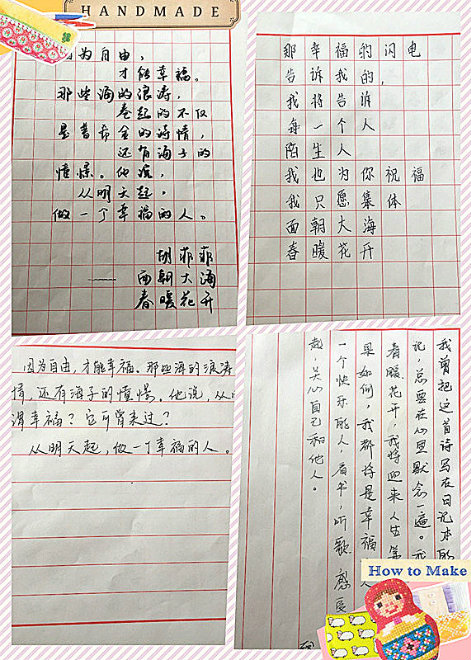 HANDMADE
因为自由,
才能幸福。
那些海的浪涛,
卷起的不仅
是普希金的诗情,
还有海子的
憧憬。他说,
从明天起,
做一个幸福的人。
胡菲菲
——面朝大海
春暖花开
那幸福的闪电
告诉我的,
我将告诉
每一个人
陌生人
我也为你祝福
我只愿集体
面朝大海
春暖花开
因为自由,才能幸福。那些海的浪涛
情,还有海子的憧憬。他说,从
谓幸福?它可曾来过?
从明天起,做一个幸福的人。
我曾把这首诗写在日记本的
说,总要在心里默念一遍。
春暖花开,我将迎来人生第
果如何,我都将是幸福
一个快乐的人,看书,听歌,感受
关心自己和他人。
How to Make